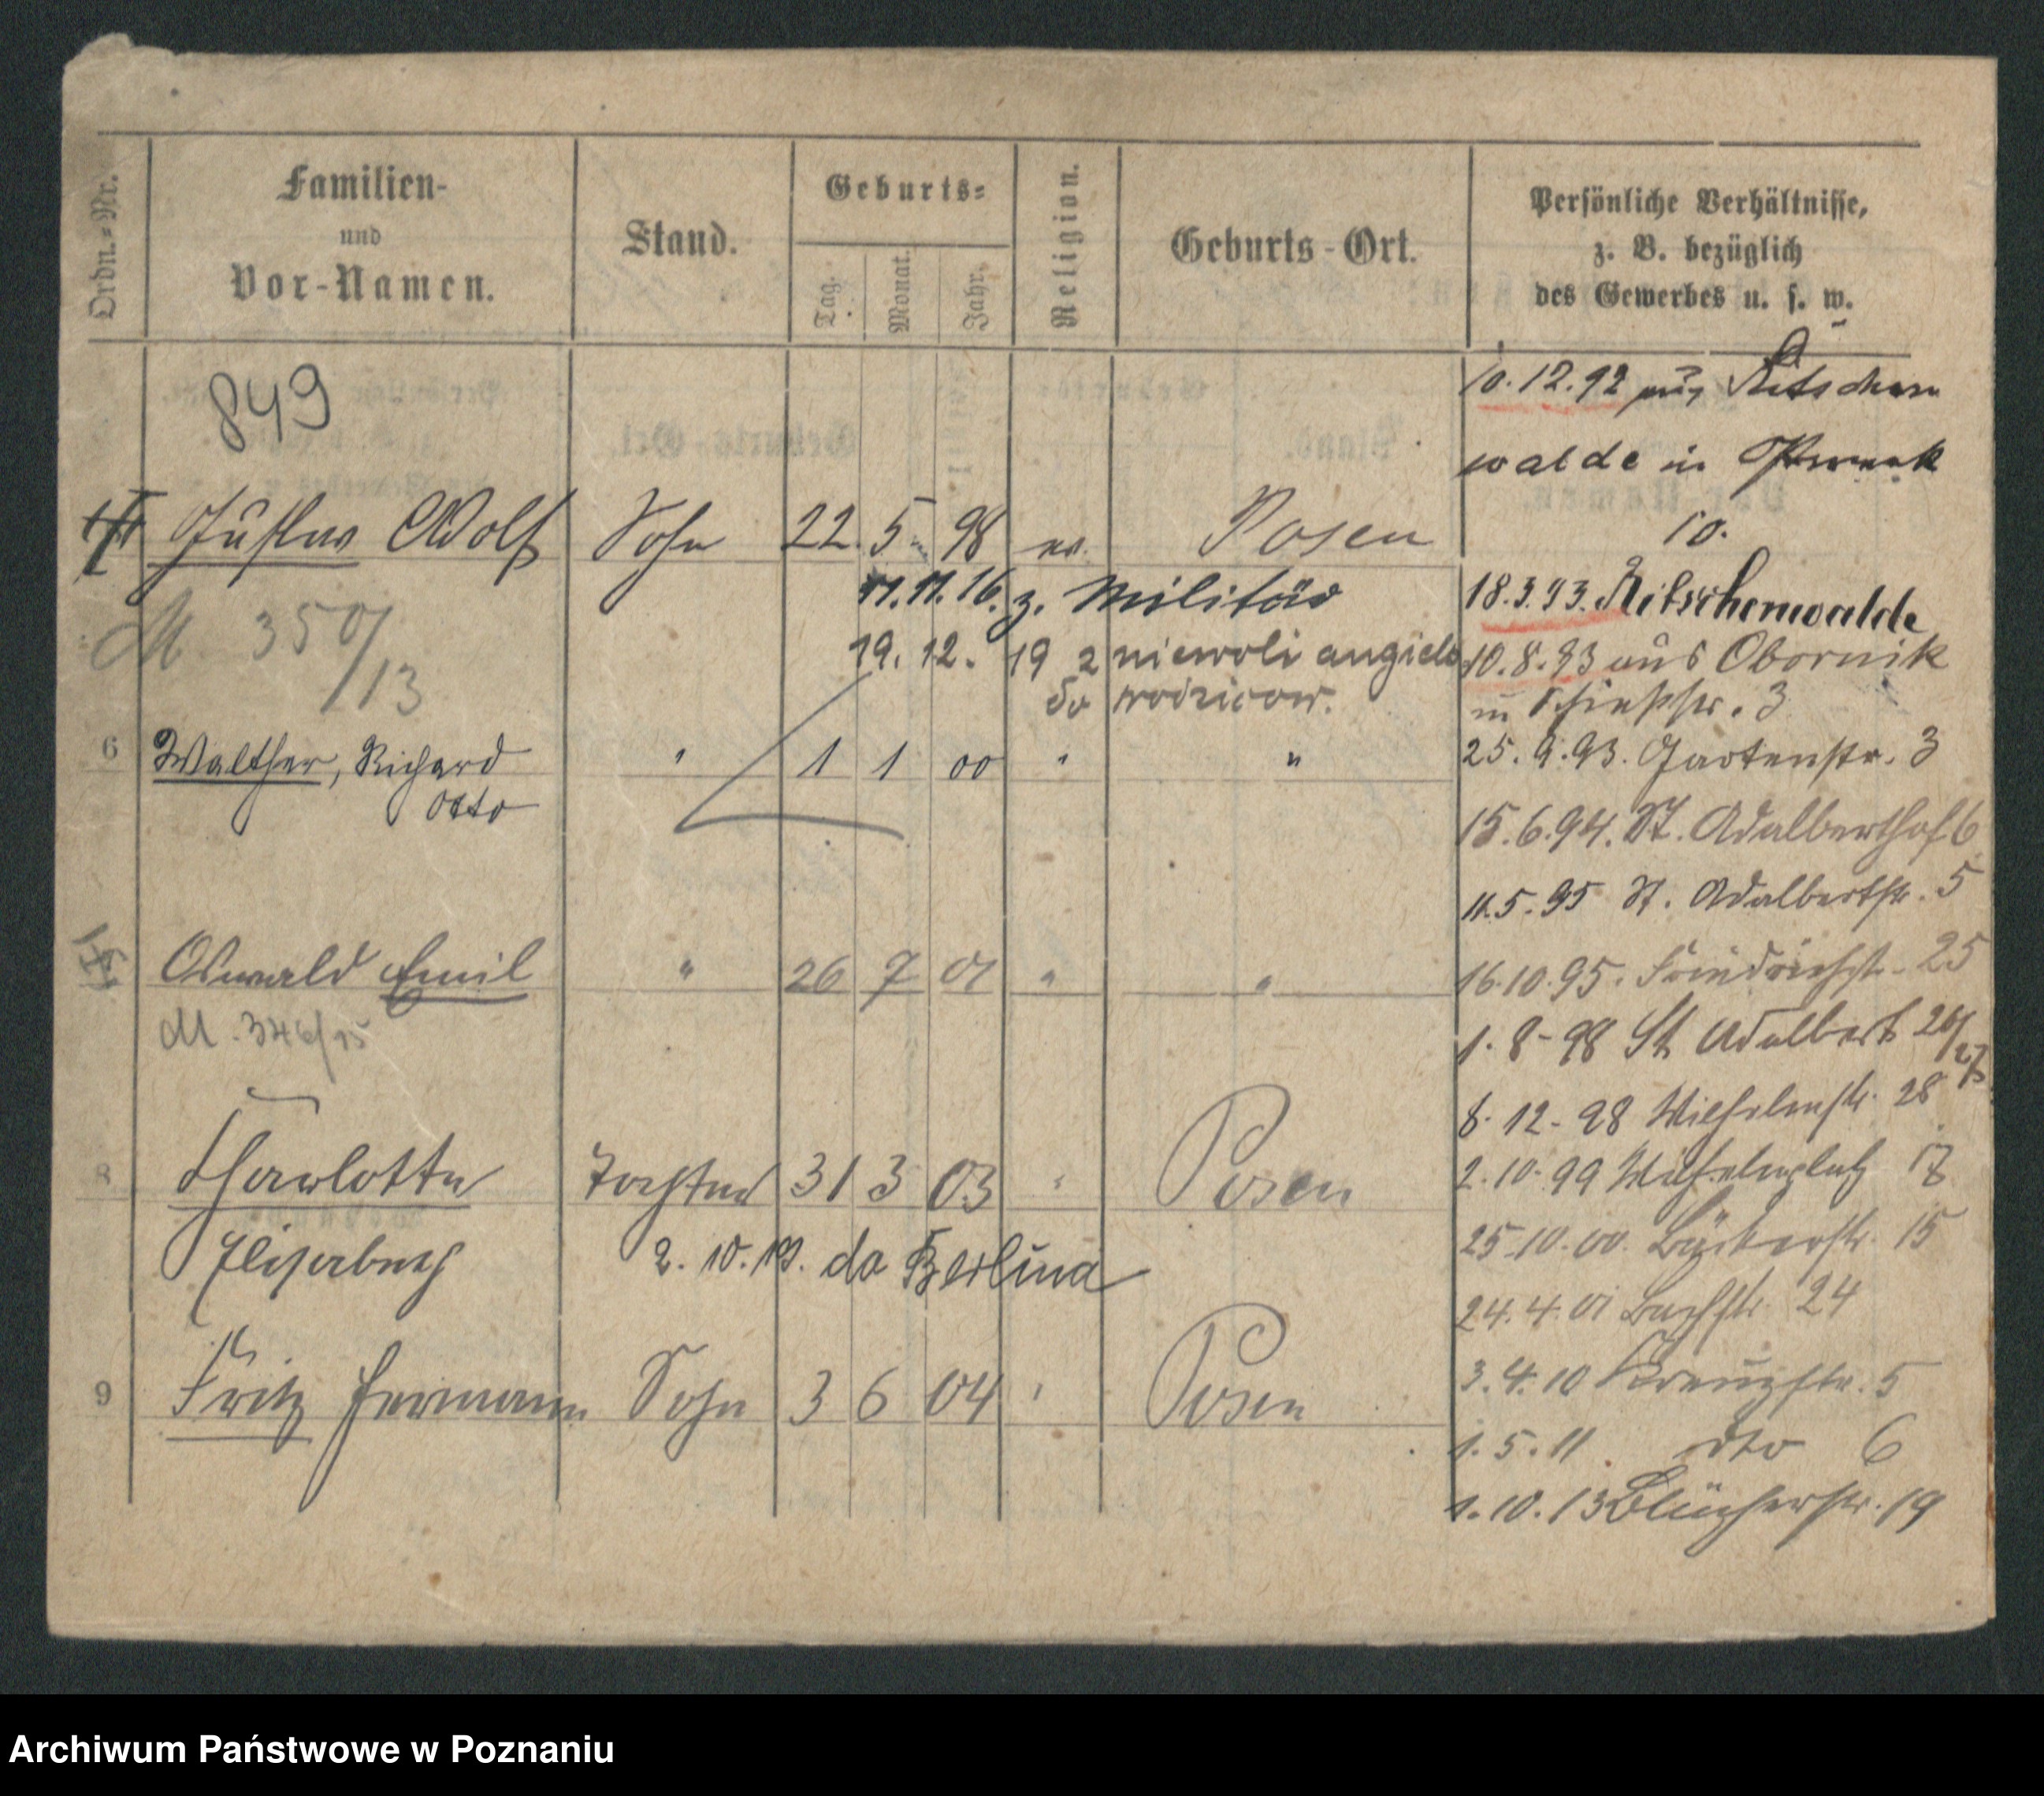 Ordn.-Nr.
Familien-
und
Vor-Namen.
Stand.
Geburts-
Tag.
Monat.
Jahr.
Religion.
Geburts-Ort.
Persönliche Verhältnisse,
z. B. bezüglich
des Gewerbes u. s. w.
849
10.12.92 aus Ritschen
walde in
10.
Gustav Adolf Sohn 22. 5. 98 ev. Posen
11.11.16. z. Militär
18.3.93. Ritschenwalde
M 350/13
19. 12. 19 z niewoli angiels
do rodziców.
10.8.93 aus Obornik
in Schießstr. 3
6 Walther, Richard " 1 1 00 " "
Otto
25.9.93. Gartenstr. 3
15.6.94. St. Adalberthof 6
11.5.95 St. Adalbertstr. 5
Oswald Emil " 26 7 01 " "
M. 346/15
16.10.95. Friedrichstr. 25
1.8-98 St Adalbert 26/27
8.12-98 Wilhelmstr. 28
8 Charlotte Tochter 31 3 03 " Posen
Elisabeth
2.10.19. do Berlina
2.10.99 Wilhelmplatz 17
25.10.00. Bäckerstr. 15
24.4.01 Bachstr. 24
9 Fritz Hermann Sohn 3 6 04 " Posen
3.4.10 Kreuzstr. 5
1.5.11. dto 6
1.10.13 Blücherstr. 19
Archiwum Państwowe w Poznaniu